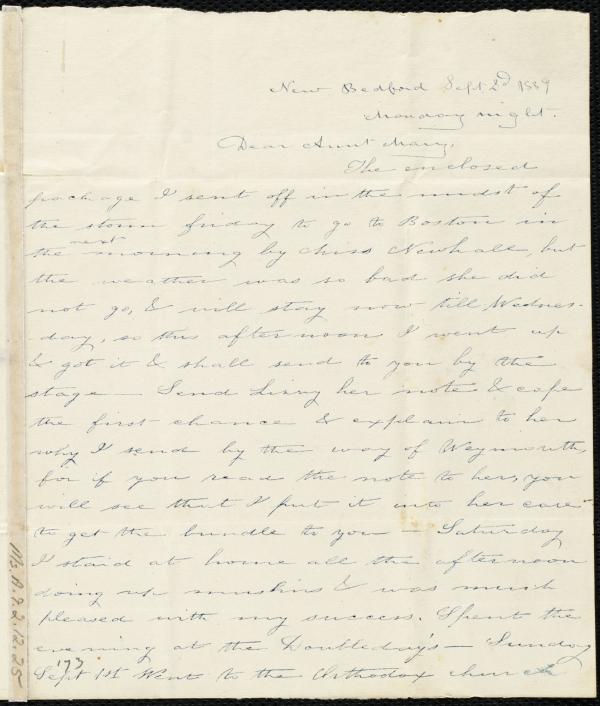 New Bedford Sept. 2d 1839
Monday night.
Dear Aunt Mary,
The enclosed
package I sent off in the midst of
the storm friday to go to Boston in
the next morning by Miss Newhall, but
the weather was so bad she did
not go, & will stay now till Wednes-
day, so this afternoon I went up
& got it & shall send to you by the
stage — Send Lizzy her note & cape
the first chance & explain to her
why I send by the way of Weymouth,
for if you read the note to her, you
will see that I put it into her care
to get the bundle to you — Saturday
I staid at home all the afternoon
doing up muslins & was much
pleased with my success. Spent the
evening at the Doubleday's — Sunday
Sept 1st Went to the Orthodox church
173
Ms.A.9.2.12.25